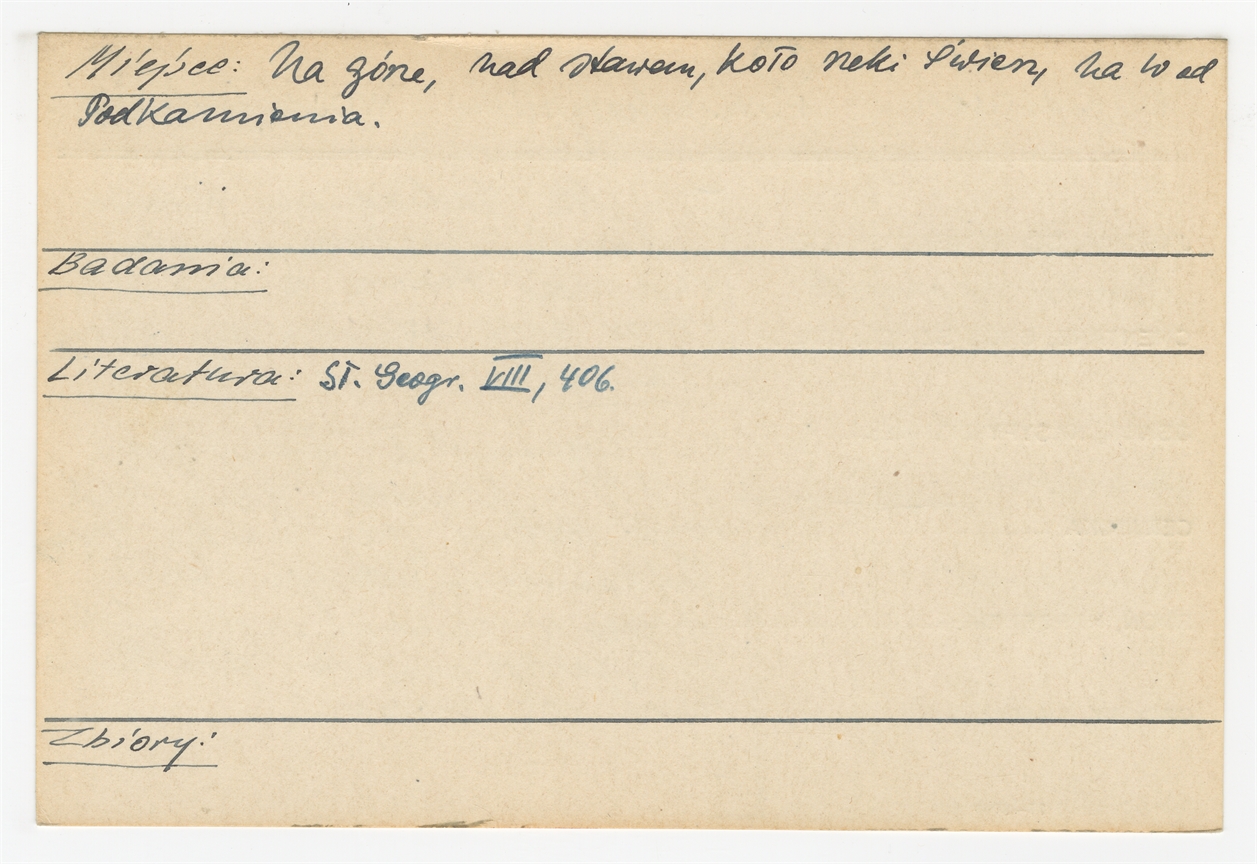 Miejsce: Na górze, nad stawem, koło rzeki Świerz, na W od
Podkamienia.
Badania:
Literatura: Sł. Geogr. VIII, 406.
Zbiory: